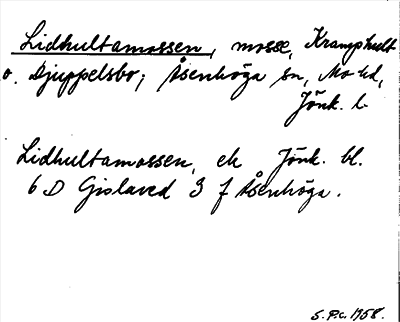 Lidhultamossen, mosse, Kramphult
o. Djuppelsbo; Åsenhöga sn, Mo hd,
Jönk. l.
Lidhultamossen, ek Jönk. bl.
6 D Gislaved 3 f Åsenhöga.
S. P.c. 1958.